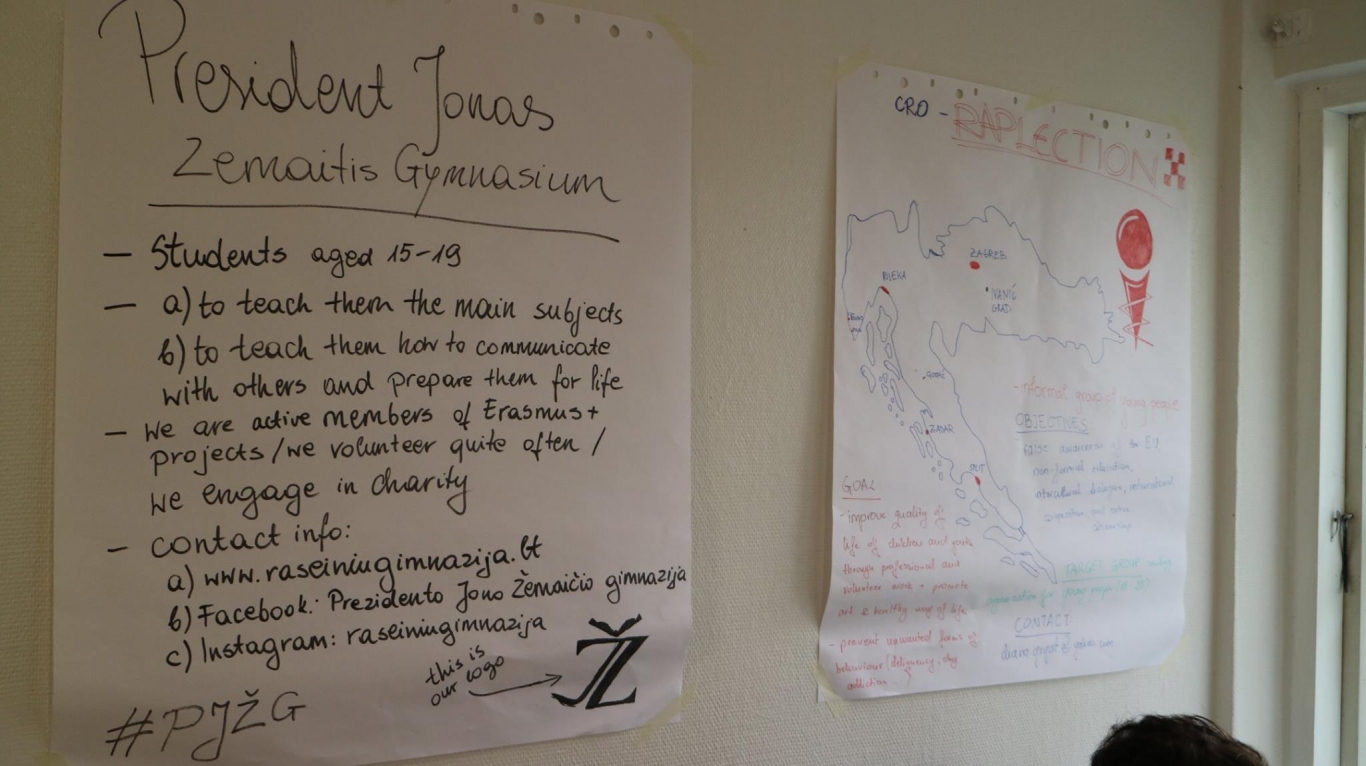 President Jonas
Zemaitis Gymnasium
— Students aged 15-19
— a) to teach them the main subjects
b) to teach them how to communicate
with others and prepare them for life
— We are active members of Erasmus+
projects / we volunteer quite often /
we engage in charity
— contact info:
a) www.raseiniugimnazija.lt
b) Facebook: Prezidento Jono Žemaičio gimnazija
c) Instagram: raseiniugimnazija
this is
our logo
JŽ
#PJŽG
CRO - RAPLECTION
ZAGREB
IVANIĆ
GRAD
RIJEKA
ZADAR
SPLIT
- informal group of young people
OBJECTIVES
raise awareness of EU
non-formal education,
intercultural dialogue, international
cooperation and active
GOAL
- improve quality of
life of children and youth
through professional and
volunteer work + promote
art & healthy way of life
- prevent unwanted forms of
behaviour
addiction
TARGET GROUP
CONTACT